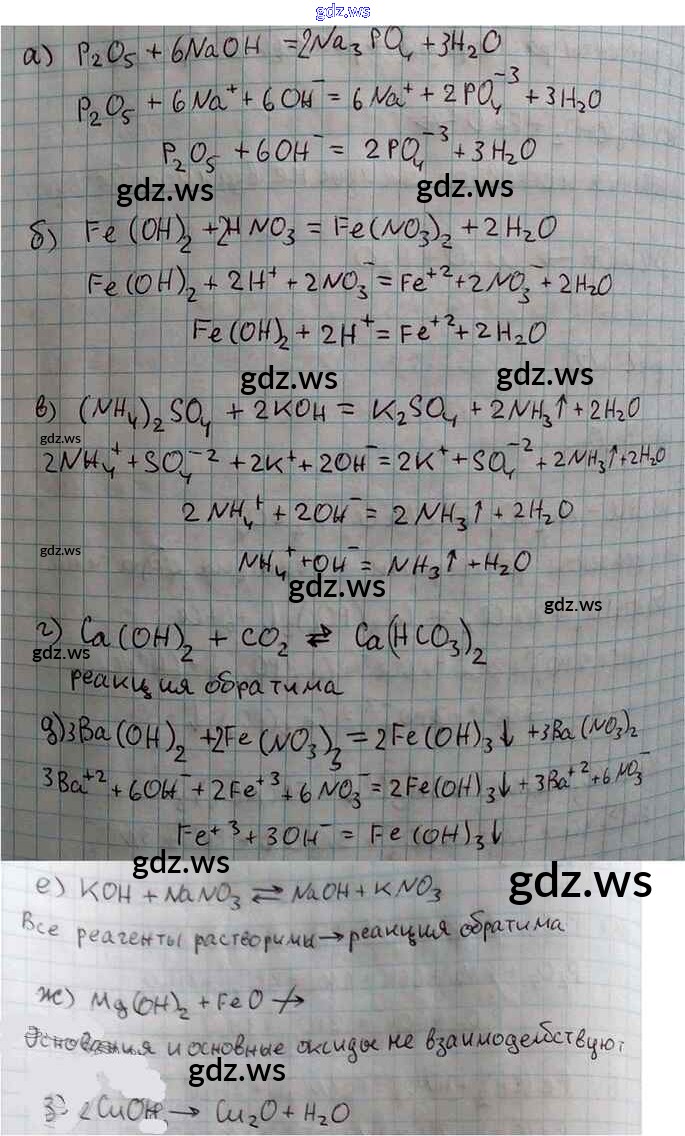 gdz.ws
а) P₂O₅ + 6NaOH = 2Na₃PO₄ + 3H₂O
P₂O₅ + 6Na⁺ + 6OH⁻ = 6Na⁺ + 2PO₄⁻³ + 3H₂O
P₂O₅ + 6OH⁻ = 2PO₄⁻³ + 3H₂O
gdz.ws gdz.ws
б) Fe(OH)₂ + 2HNO₃ = Fe(NO₃)₂ + 2H₂O
Fe(OH)₂ + 2H⁺ + 2NO₃⁻ = Fe⁺² + 2NO₃⁻ + 2H₂O
Fe(OH)₂ + 2H⁺ = Fe⁺² + 2H₂O
gdz.ws gdz.ws
в) (NH₄)₂SO₄ + 2KOH = K₂SO₄ + 2NH₃↑ + 2H₂O
gdz.ws
2NH₄⁺ + SO₄⁻² + 2K⁺ + 2OH⁻ = 2K⁺ + SO₄⁻² + 2NH₃↑ + 2H₂O
2NH₄⁺ + 2OH⁻ = 2NH₃↑ + 2H₂O
gdz.ws
NH₄⁺ + OH⁻ = NH₃↑ + H₂O
gdz.ws
gdz.ws
г) Ca(OH)₂ + CO₂ ⇄ Ca(HCO₃)₂
gdz.ws
реакция обратима
д) 3Ba(OH)₂ + 2Fe(NO₃)₃ = 2Fe(OH)₃↓ + 3Ba(NO₃)₂
3Ba⁺² + 6OH⁻ + 2Fe⁺³ + 6NO₃⁻ = 2Fe(OH)₃↓ + 3Ba⁺² + 6NO₃⁻
Fe⁺³ + 3OH⁻ = Fe(OH)₃↓
gdz.ws
gdz.ws
е) KOH + NaNO₃ ⇄ NaOH + KNO₃
Все реагенты растворимы → реакция обратима
ж) Mg(OH)₂ + FeO ↛
Основания и основные оксиды не взаимодействую
gdz.ws
з) 2CuOH → Cu₂O + H₂O